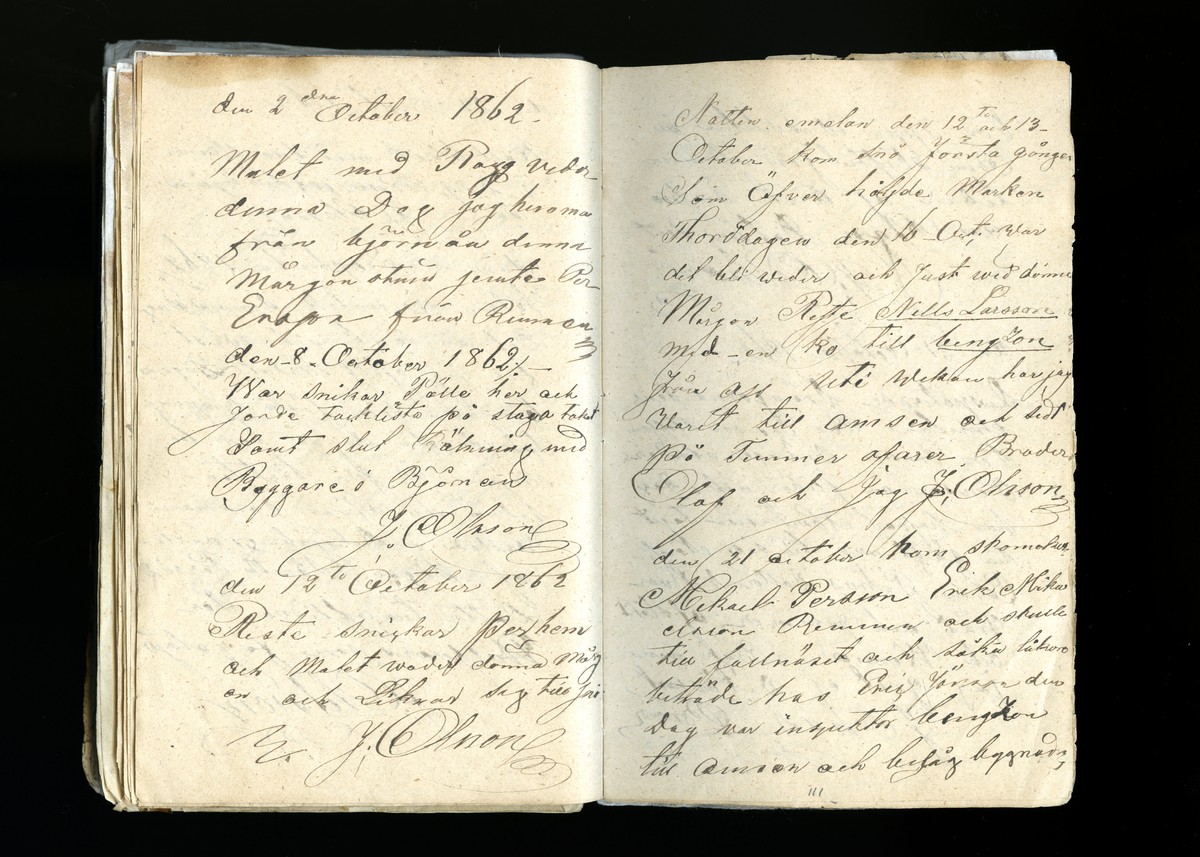 den 2 dra October 1862 -
Mulet med Ragg veder
denna Dag jag hemma
från björnån denna
Mårgon stund jemte Per
Ersson från Remmen
den - 8 - October 1862 -
War snikar Pålle her och
jorde Tacklista på staga taket
Samt slut Räkning med
Byggare i Björnån
J. Olsson
den 12 to October 1862
Reste snickar Per hem
och Malet wader denna Mårg
on och Liknar Sig till
J. Olsson
Natten emelan den 12 to och 13 -
October kom snö första gången
Som Öfver höljde Marken
Thorsdagen den 16 - Oct. War
det bli weder och Just wed denna
Mårgon Reste Nills Larsson
med - en ko till bengzon
från Uti wekan har jag
Varet till amsen och sedt
på Timmer afarer Broder
Olof och Jag J. Olsson
den 21 october kom skomakar
Mikael Persson Erik Mika
elsson Remmen och skulle
till fallnäset och söka
beträde hos Eriq Jönsson den
Dag var inspektor bengzon
till amsen och besåg bygnads
111